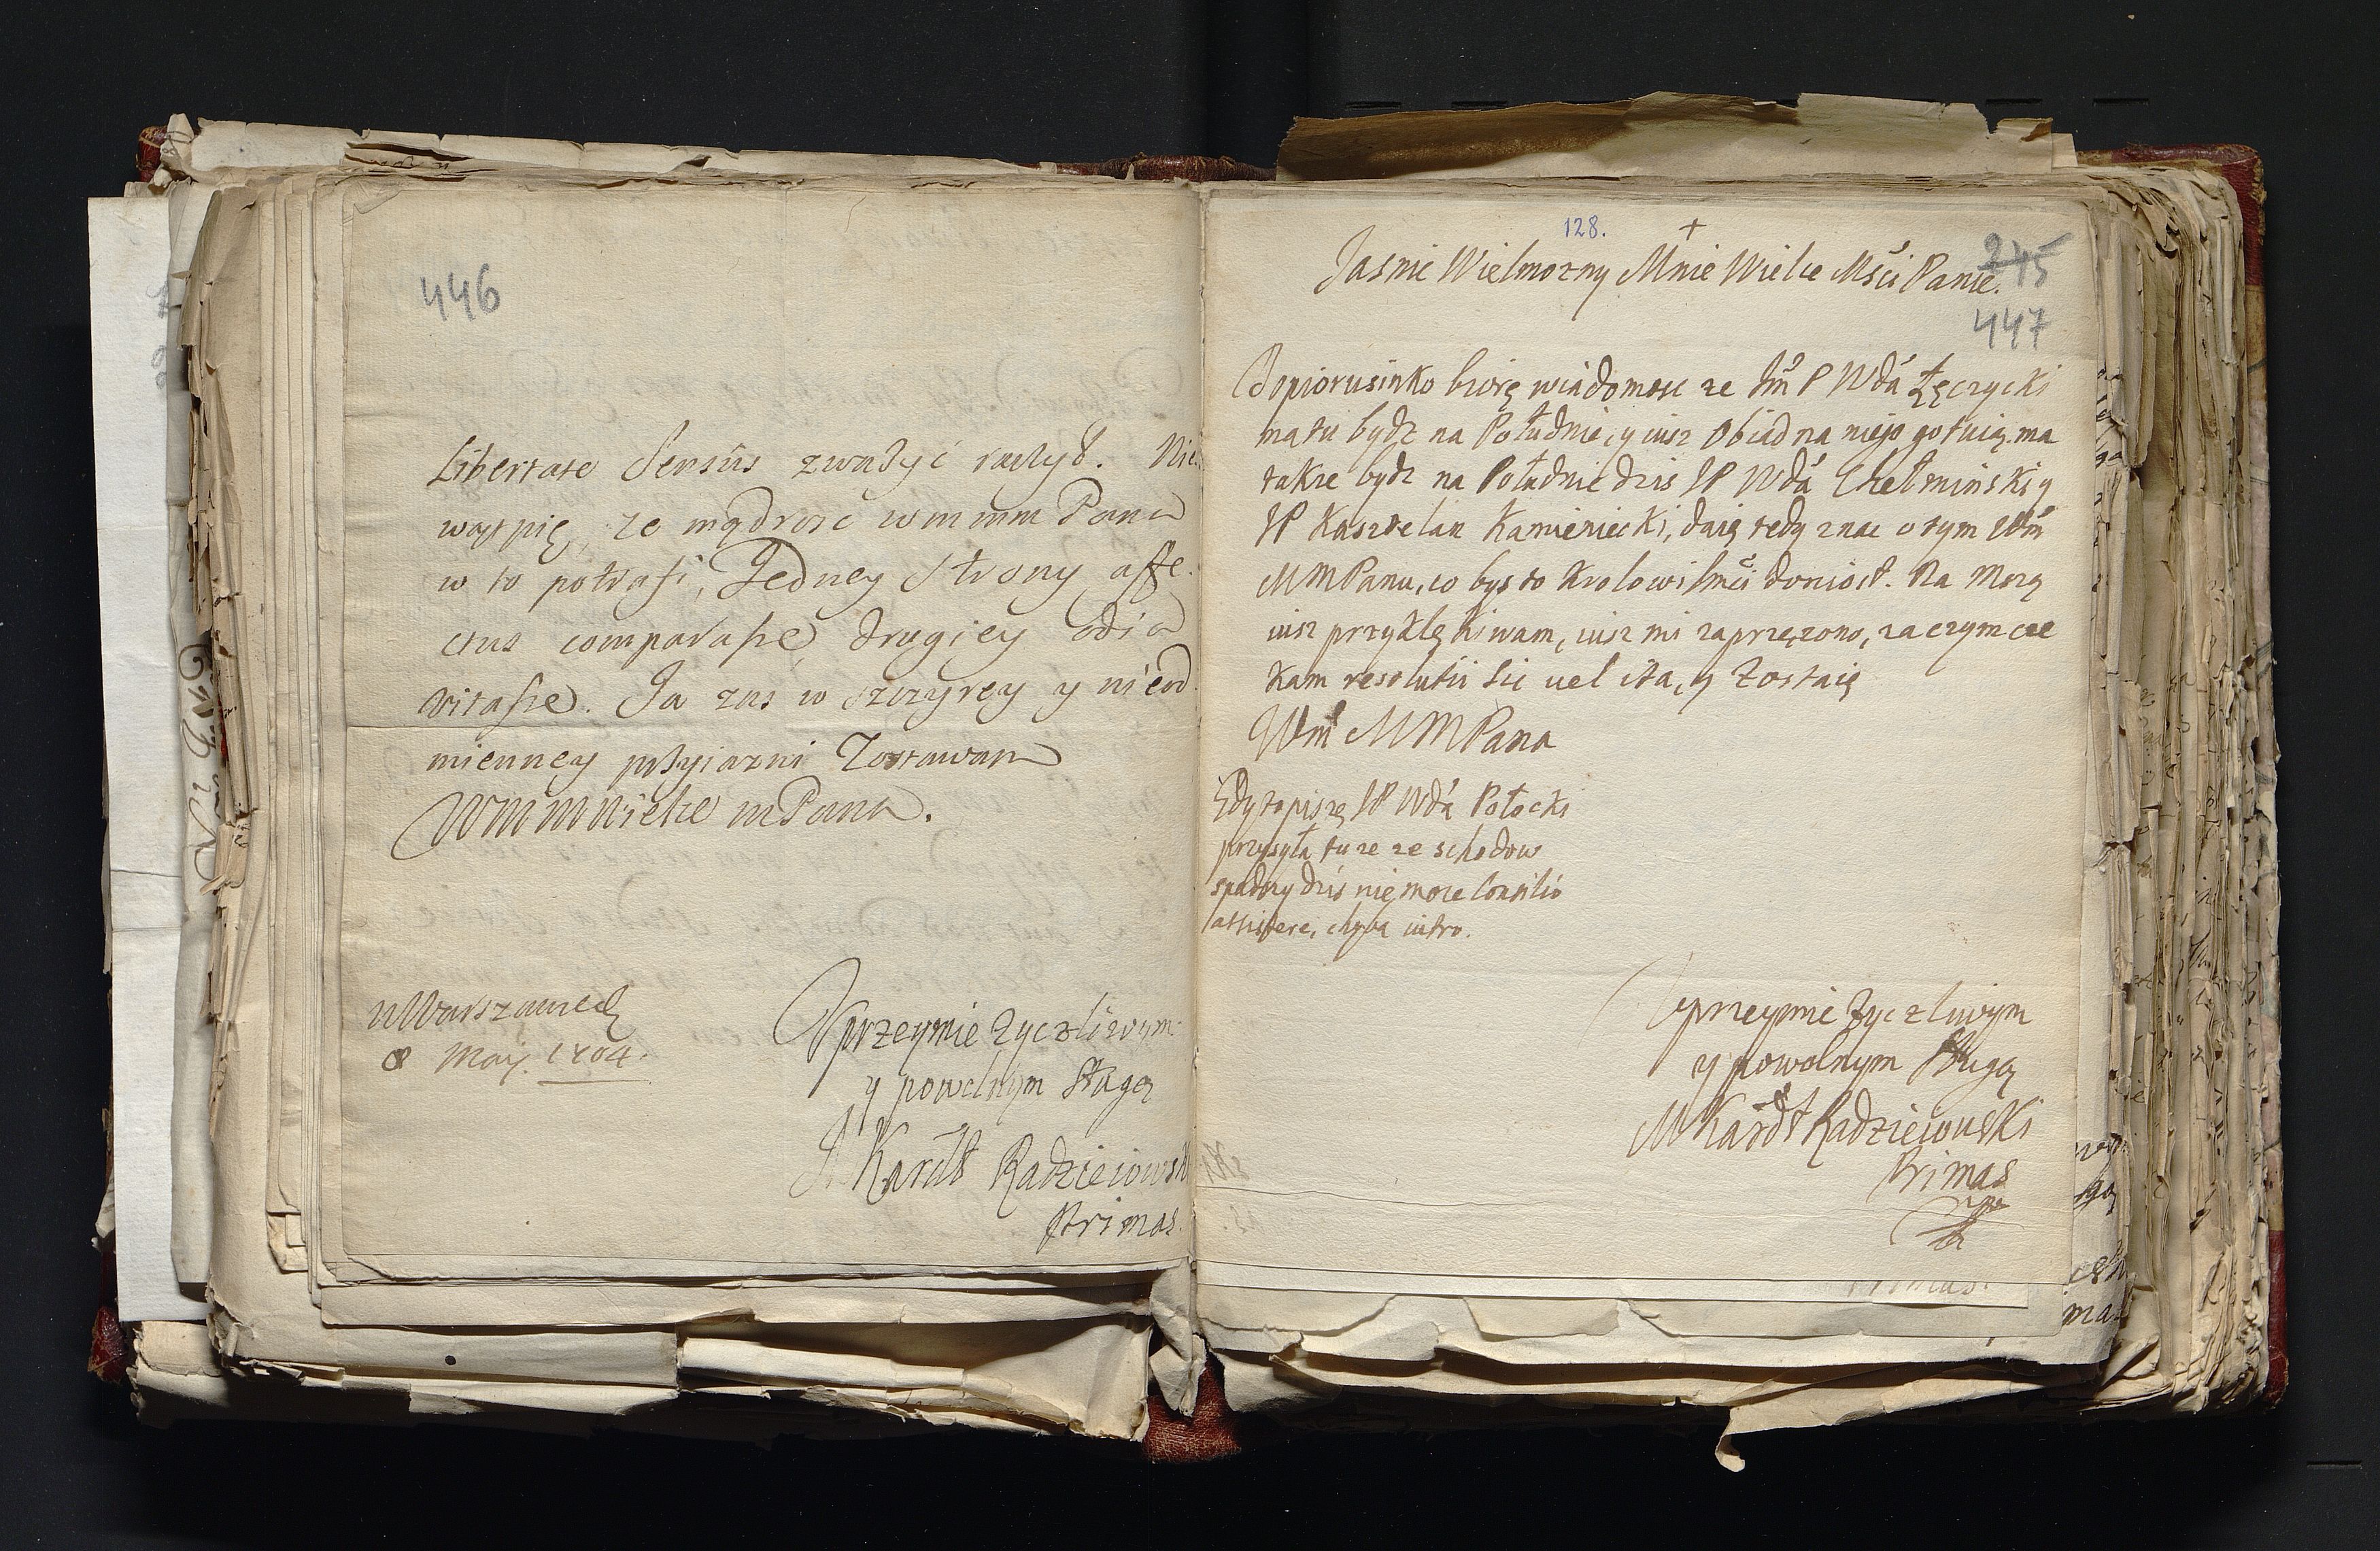 446
Libertate Sensus zwazyć raczył. Nie
wątpię, ze mądrosc wmmm Pana
w to potrafi, Jedney strony affe-
ctus comparasse, drugiey odia
vitasse. Ja zas w szczyrey y nieod
mienney przyiazni Zostawam
WMMWielce mPana.
w Warszawie
8 Maij 1704.
Uprzeymie zyczliwym
y powolnym Sługą
M Kardł Radzieiowsk
Primas.
128.
+
Jasnie Wielmozny Mnie Wielce Mśći Panie.
245
447
Dopiorusinko biorę wiadomosc ze Jm P Wda Łęczycki
ma tu bydz na Południe, y iusz Obiad na niego gotuią, ma
takze bydz na Południe dzis JP Wda Chełminski y
JP Kasztelan Kamieniecki, daię tedy znac o tym Wm
MMPanu, co bys to Krolowi Jmći doniosł. Na Mszą
iusz przyklękiwam, iusz mi zaprzęzono, zaczym cze
kam resolutii sic uel ita, y Zostaię
Wm MMPana
Gdy to piszę JP Wda Połocki
przysyła tu ze ze schodow
spadszy dzis nie moze Consilio
assistere, chyba iutro.
Uprzeymie Zyczliwym
y powolnym Sługą
M Kardł Radzieiowski
Primas